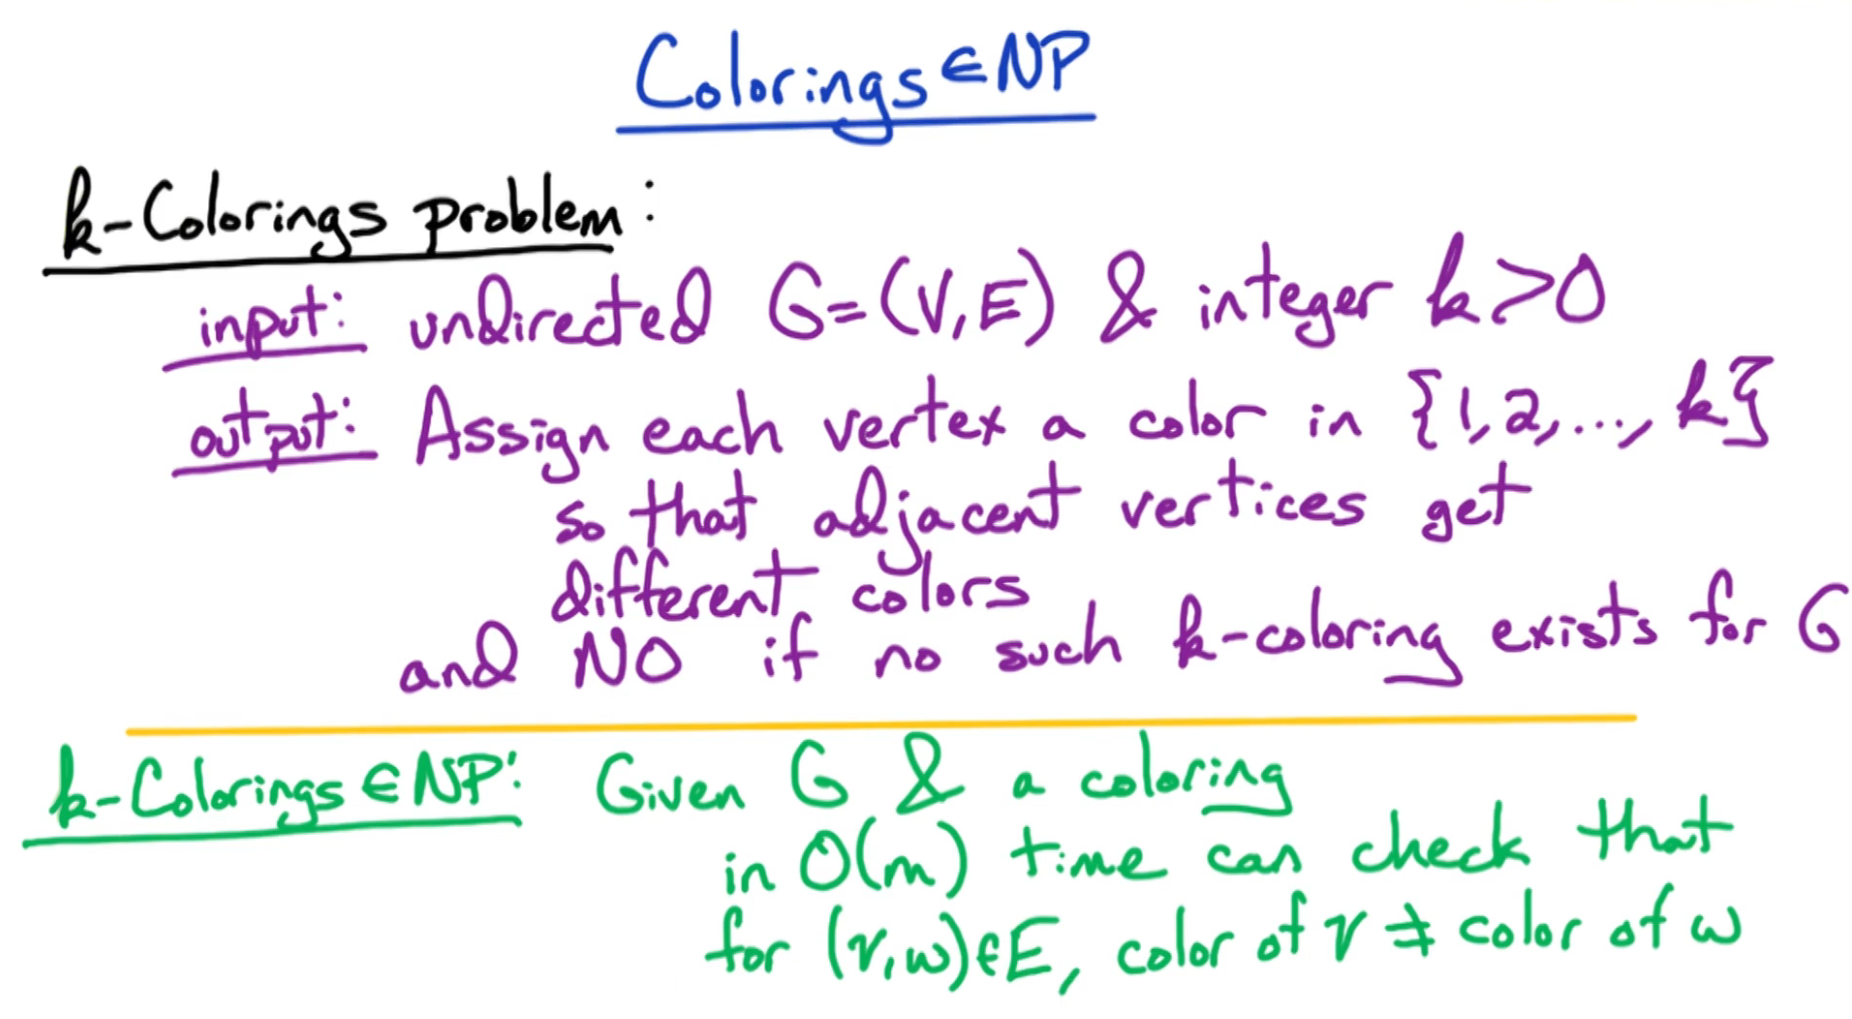 Colorings ∈ NP
k-Colorings problem:
input: undirected G=(V,E) & integer k>0
output: Assign each vertex a color in {1,2,...,k}
so that adjacent vertices get
different colors
and NO if no such k-coloring exists for G
k-Colorings ∈ NP: Given G & a coloring
in O(m) time can check that
for (v,w)∈E, color of v ≠ color of w